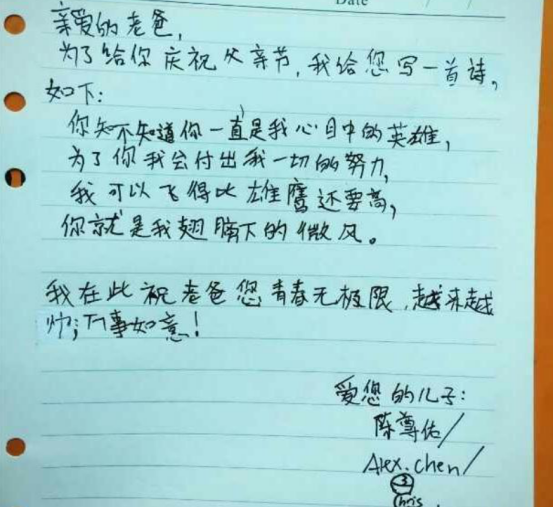 Date
亲爱的老爸，
为了给你庆祝父亲节，我给您写一首诗，
如下：
你知不知道你一直是我心目中的英雄，
为了你我会付出我一切的努力，
我可以飞得比雄鹰还要高，
你就是我翅膀下的微风。
我在此祝老爸您青春无极限，越来越
帅；万事如意！
爱您的儿子：
陈尊佑/
Alex.chen/
Chris.